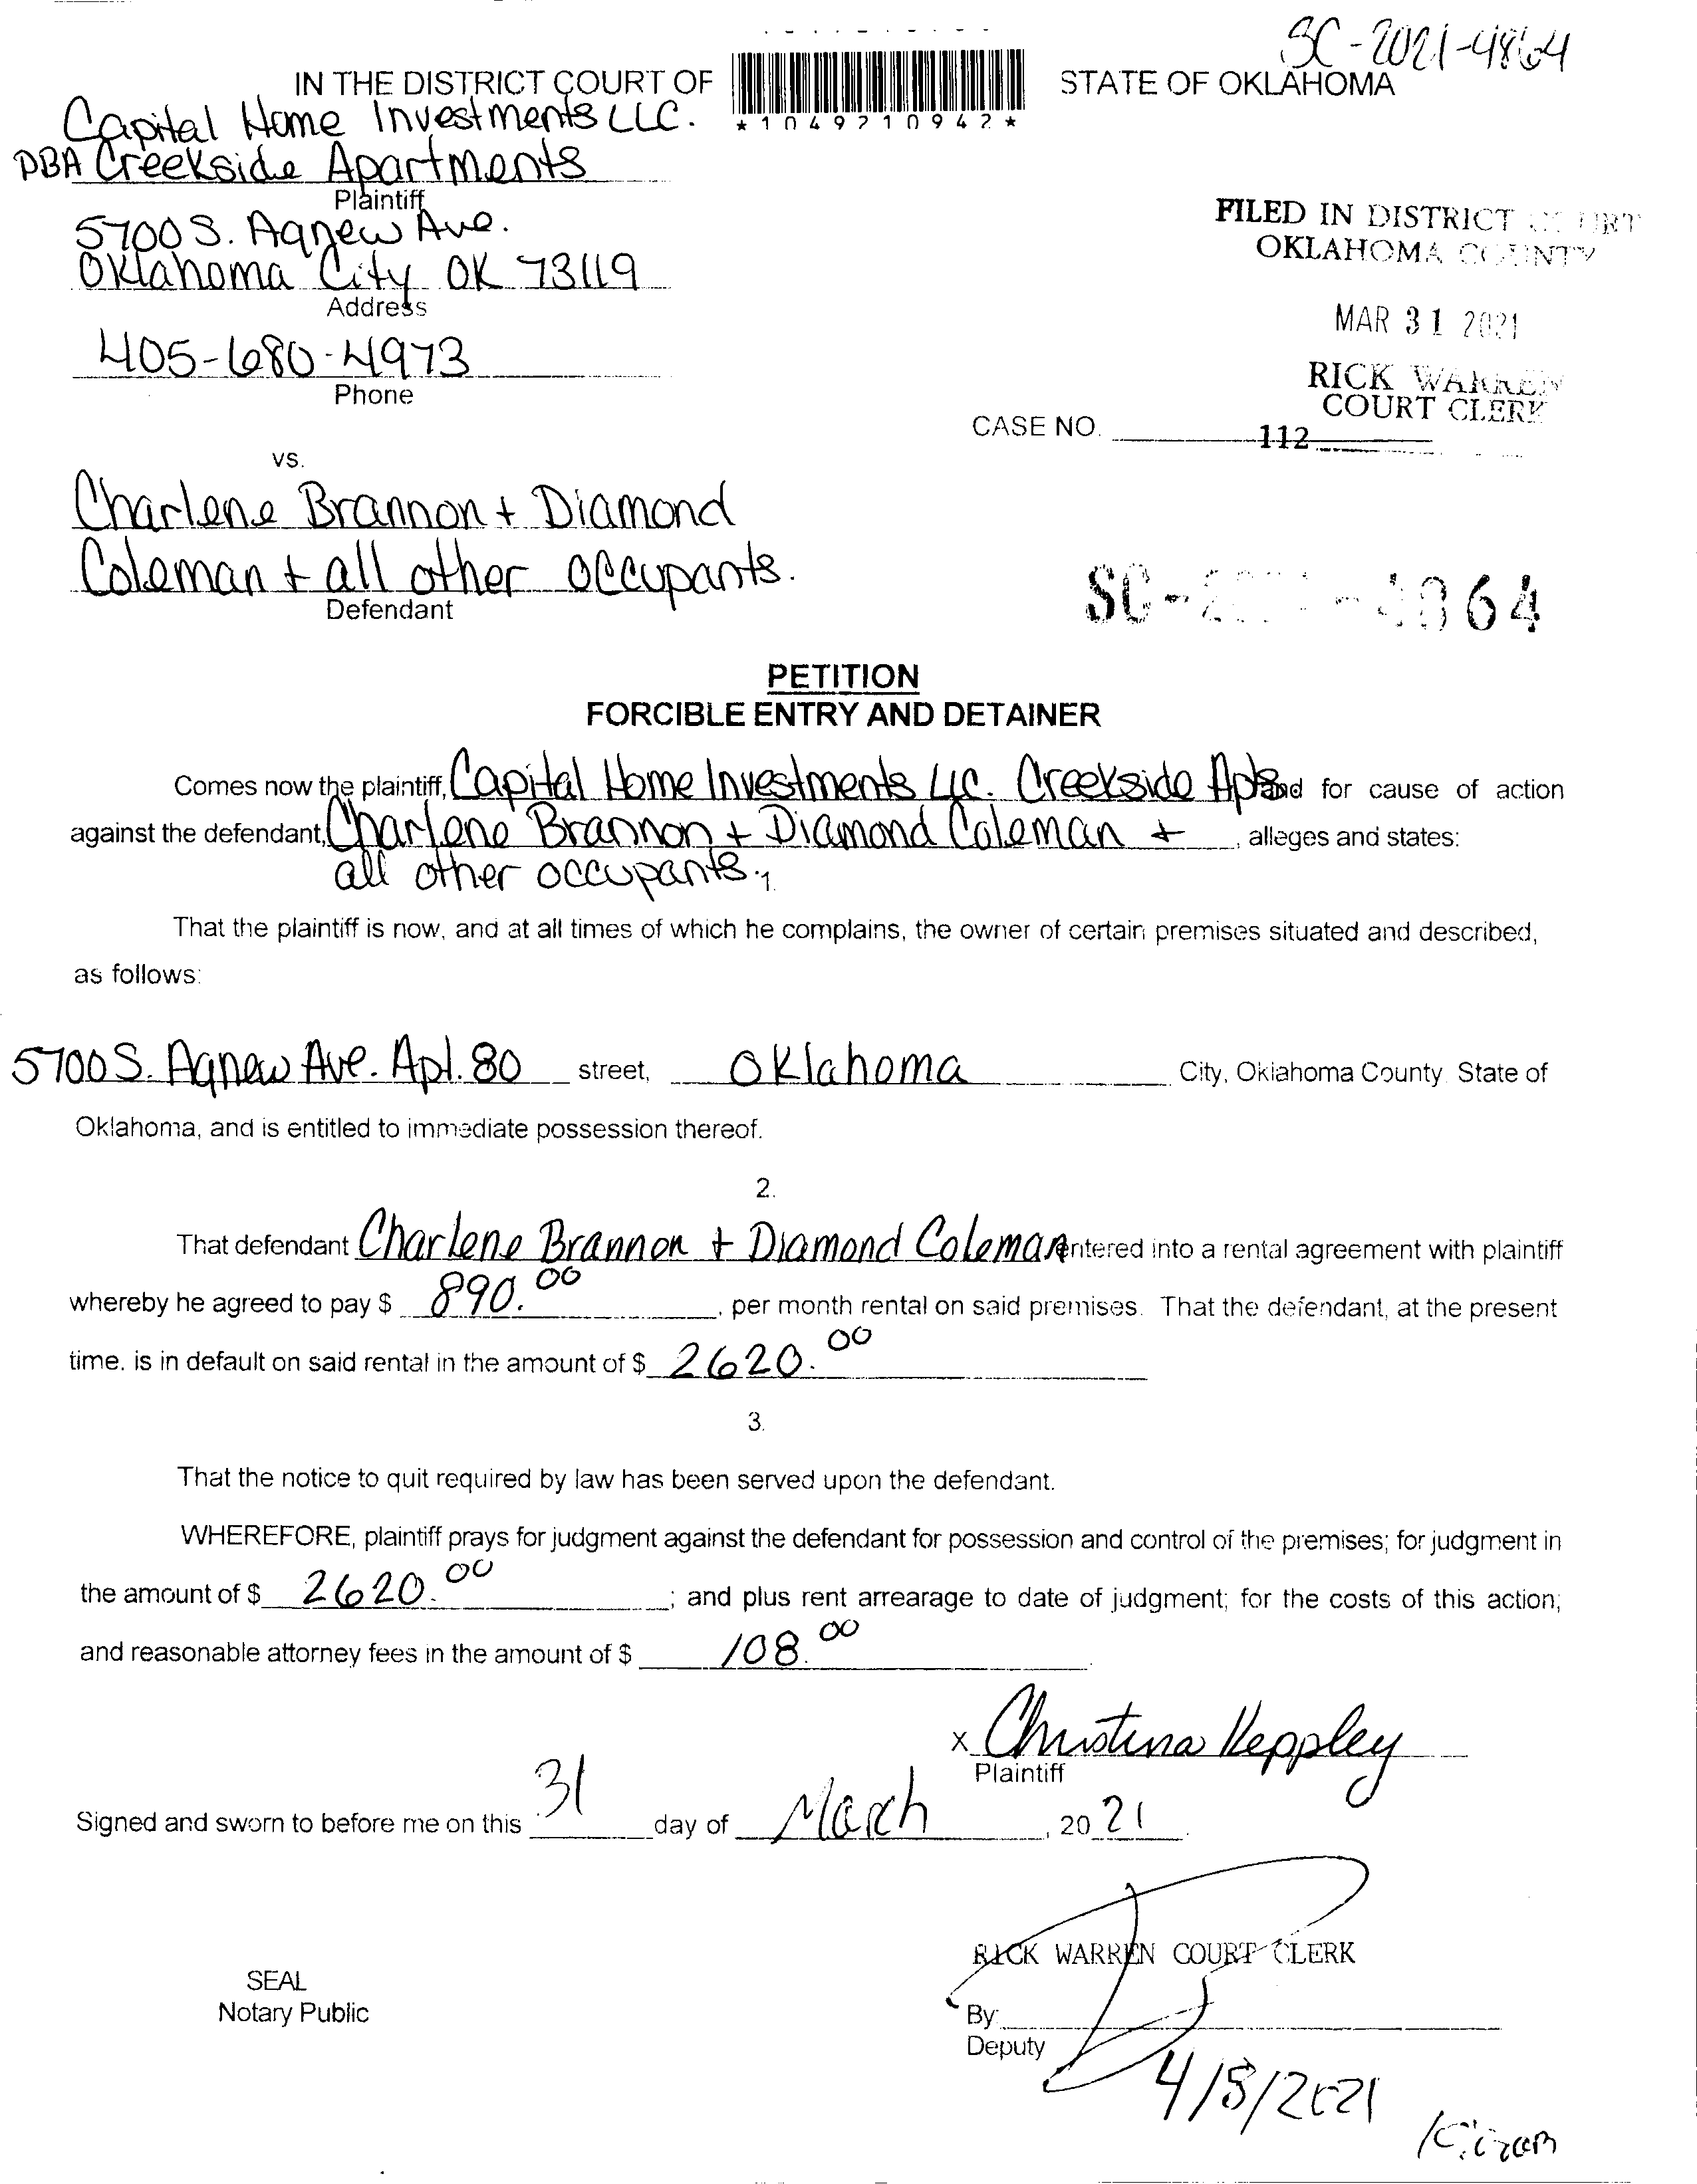 SC-2021-4864
IN THE DISTRICT COURT OF STATE OF OKLAHOMA
*1049210942*
Capital Home Investments LLC.
DBA Creekside Apartments
Plaintiff
5700 S. Agnew Ave.
Oklahoma City OK 73119
Address
405-680-4973
Phone
FILED IN DISTRICT COURT
OKLAHOMA COUNTY
MAR 31 2021
RICK WARREN
COURT CLERK
CASE NO. 112
vs.
Charlene Brannon + Diamond
Coleman + all other occupants.
Defendant
SC-2021-4864
PETITION
FORCIBLE ENTRY AND DETAINER
Comes now the plaintiff, Capital Home Investments LLC. Creekside Apts and for cause of action
against the defendant, Charlene Brannon + Diamond Coleman + , alleges and states:
all other occupants.
1.
That the plaintiff is now, and at all times of which he complains, the owner of certain premises situated and described,
as follows:
5700 S. Agnew Ave. Apt. 80 street, Oklahoma City, Oklahoma County State of
Oklahoma, and is entitled to immediate possession thereof.
2.
That defendant Charlene Brannon + Diamond Coleman entered into a rental agreement with plaintiff
whereby he agreed to pay $ 890.00 , per month rental on said premises. That the defendant, at the present
time, is in default on said rental in the amount of $ 2620.00
3.
That the notice to quit required by law has been served upon the defendant.
WHEREFORE, plaintiff prays for judgment against the defendant for possession and control of the premises; for judgment in
the amount of $ 2620.00 ; and plus rent arrearage to date of judgment; for the costs of this action;
and reasonable attorney fees in the amount of $ 108.00
x Christina Keppley
Plaintiff
Signed and sworn to before me on this 31 day of March , 20 21
RICK WARREN COURT CLERK
SEAL
Notary Public
By:
Deputy
4/8/2021